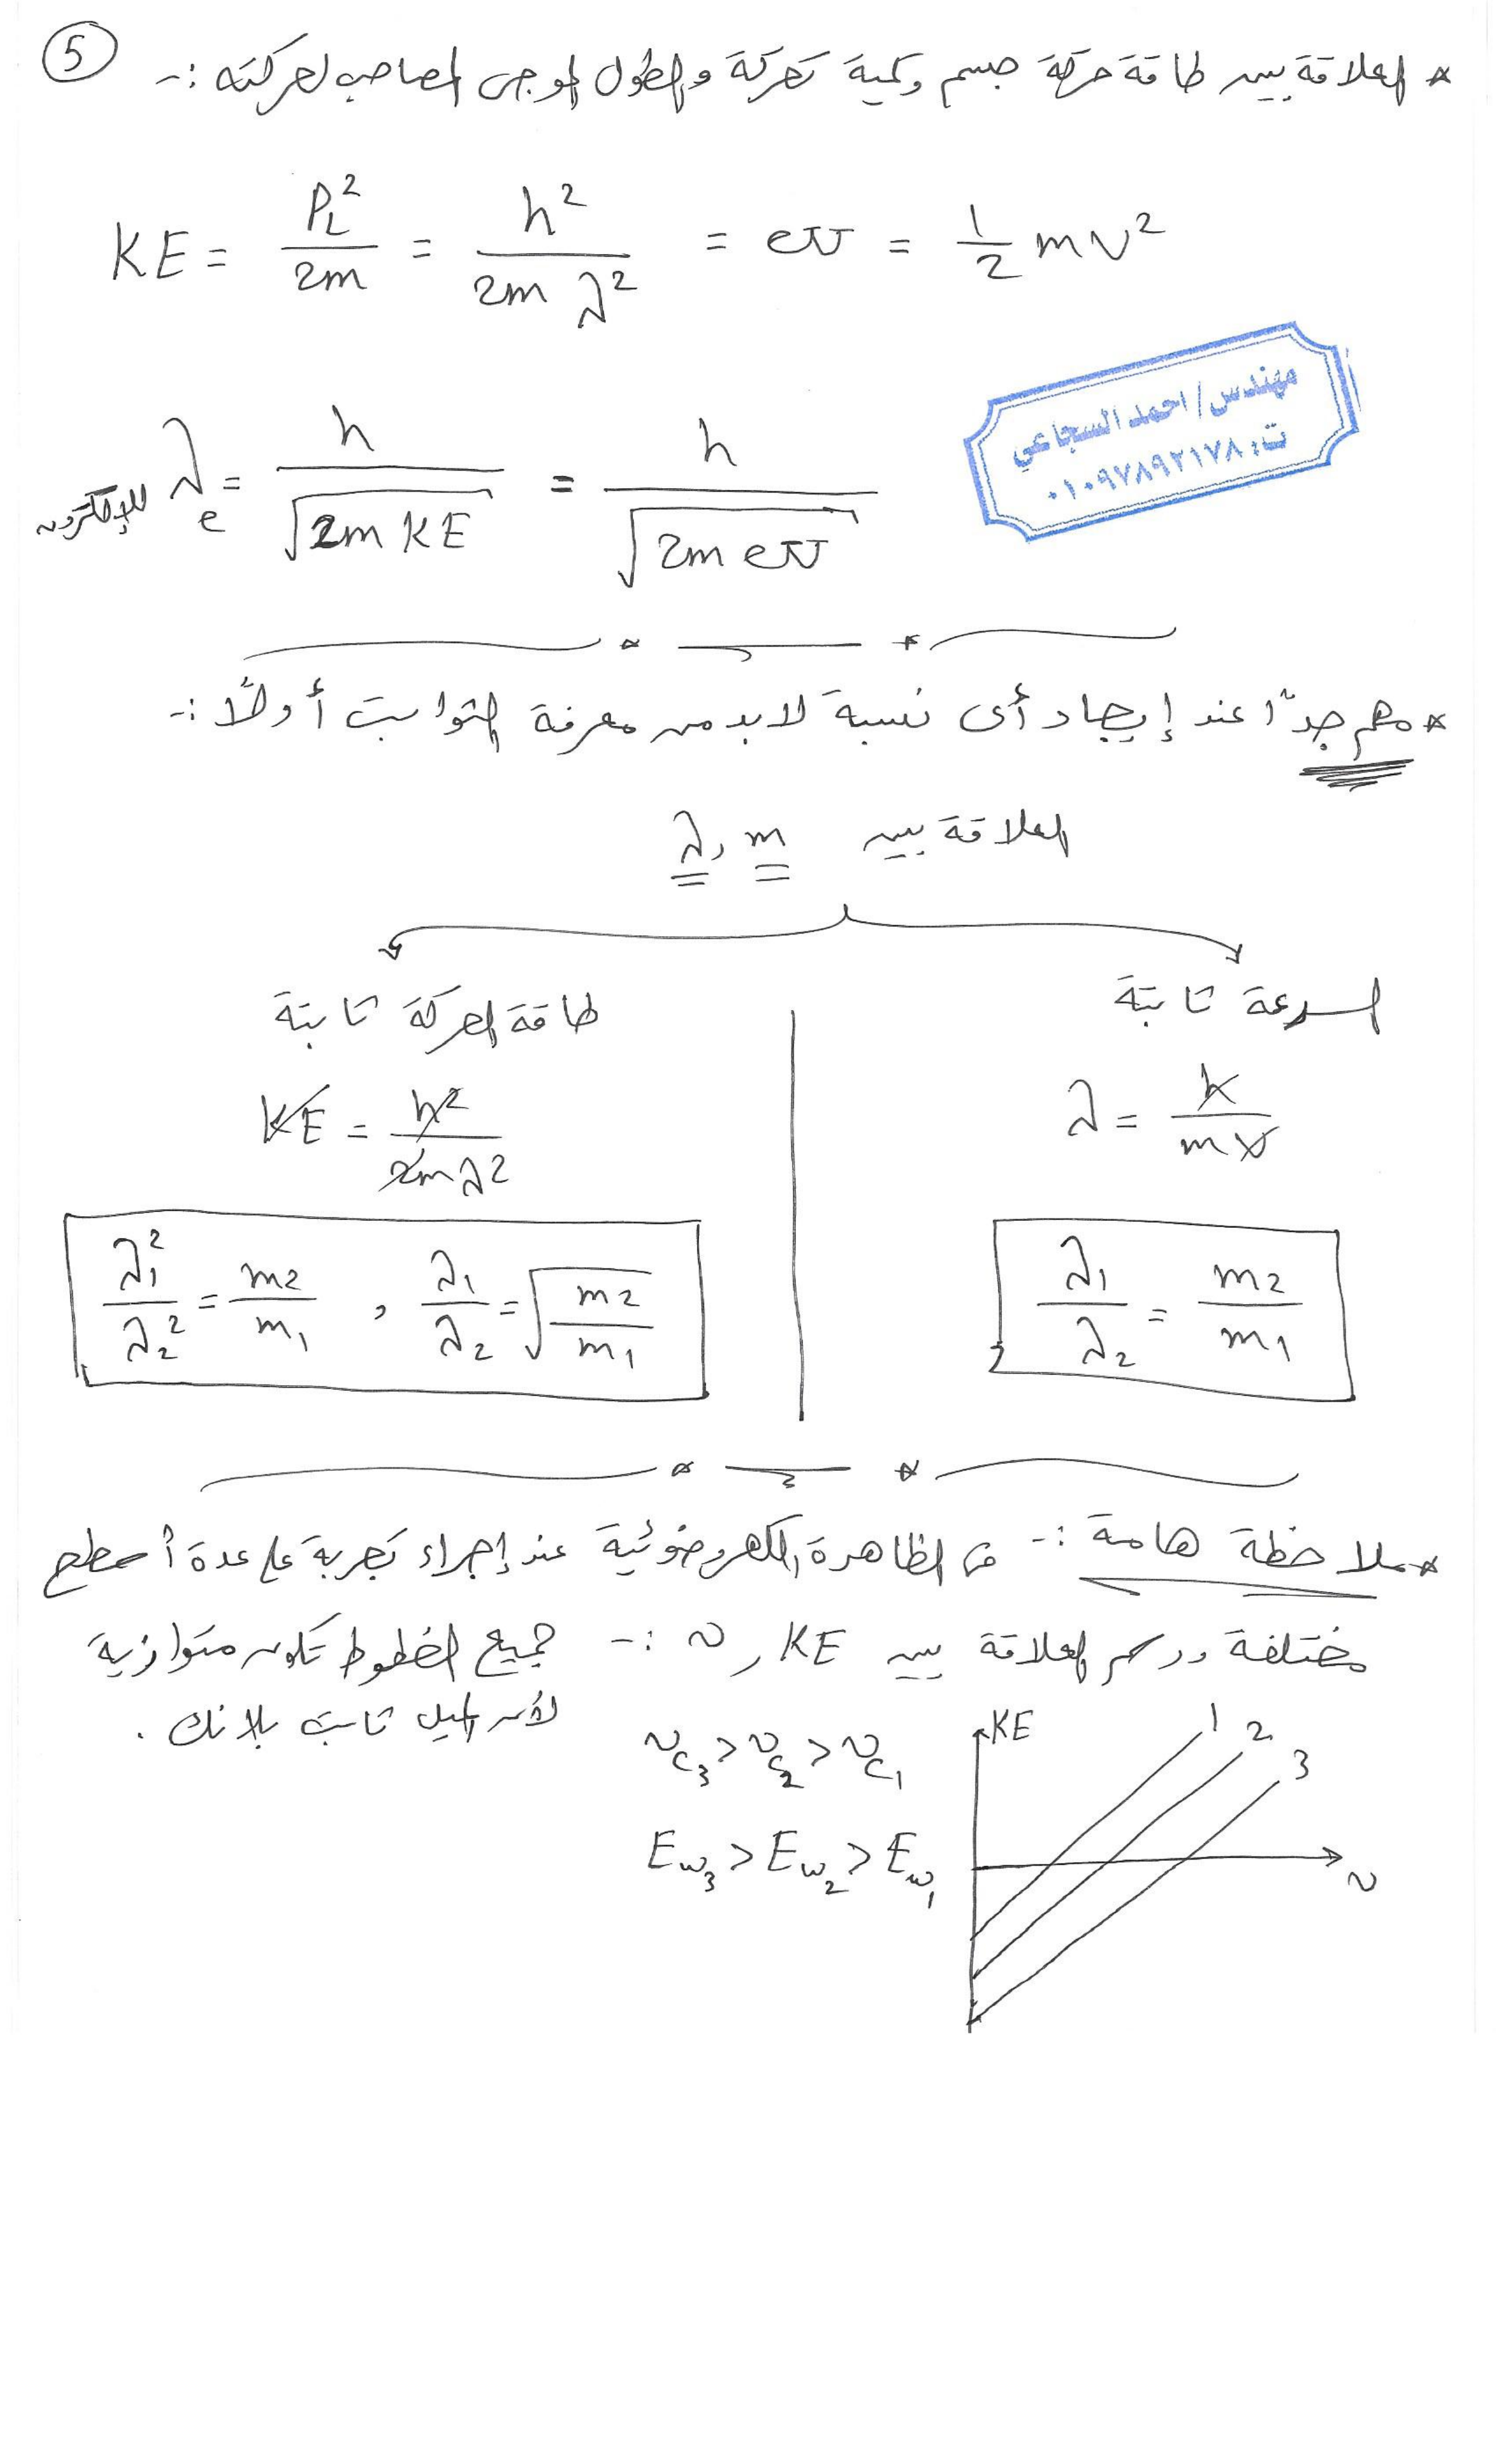 5
* العلاقة بين طاقة حركة جسم وكمية تحركة والطول الموجى المصاحب لحركته :-
KE = P_L² / 2m = h² / 2mλ² = eV = 1/2 mv²
مهندس/ احمد السجاعي
ت: ٠١٠٩٧٨٩٢١٧٨
للإلكترون λe = h / √(2m KE) = h / √(2m eV)
* مهم جدًا عند إيجاد أى نسبة لابد من معرفة الثوابت أولاً :-
العلاقة بين m , λ
السرعة ثابتة
λ = h / mv
λ1 / λ2 = m2 / m1
طاقة الحركة ثابتة
KE = h² / 2mλ²
λ1² / λ2² = m2 / m1 , λ1 / λ2 = √(m2 / m1)
* ملاحظة هامة :- فى الظاهرة الكهروضوئية عند إجراء تجربة على عدة أسطح
مختلفة ورسم العلاقة بين KE , ν :- جميع الخطوط تكون متوازية
لأن الميل ثابت بلانك .
νc3 > νc2 > νc1
Ew3 > Ew2 > Ew1
KE
1
2
3
ν